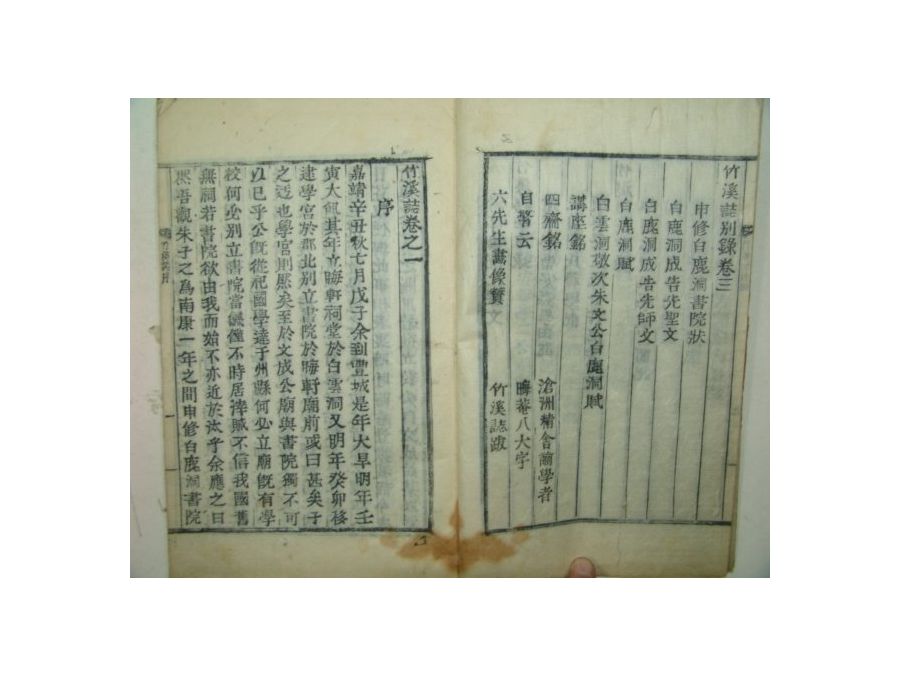 竹溪誌別錄卷三
申修白鹿洞書院狀
白鹿洞成告先聖文
白鹿洞成告先師文
白鹿洞賦
白雲洞敬次朱文公白鹿洞賦
講座銘
四齋銘 滄洲精舍諭學者
自警云 晦菴八大字
六先生畫像贊 竹溪誌跋
竹溪誌卷之一
序
嘉靖辛丑秋七月戊子余到豐城是年大旱明年壬
寅大飢其年立晦軒祠堂於白雲洞又明年癸卯移
建學宮於郡北別立書院於晦軒廟前或曰甚矣子
之迂也學宮則然矣至於文成公廟與書院獨不可
以已乎公旣從祀國學達于州縣何必立廟旣有學
校何必別立書院當饑僅不時居涬賊不信我國舊
無祠若書院欲由我而始不亦近於汰乎余應之曰
然吾觀朱子之爲南康一年之間申修白鹿洞書院